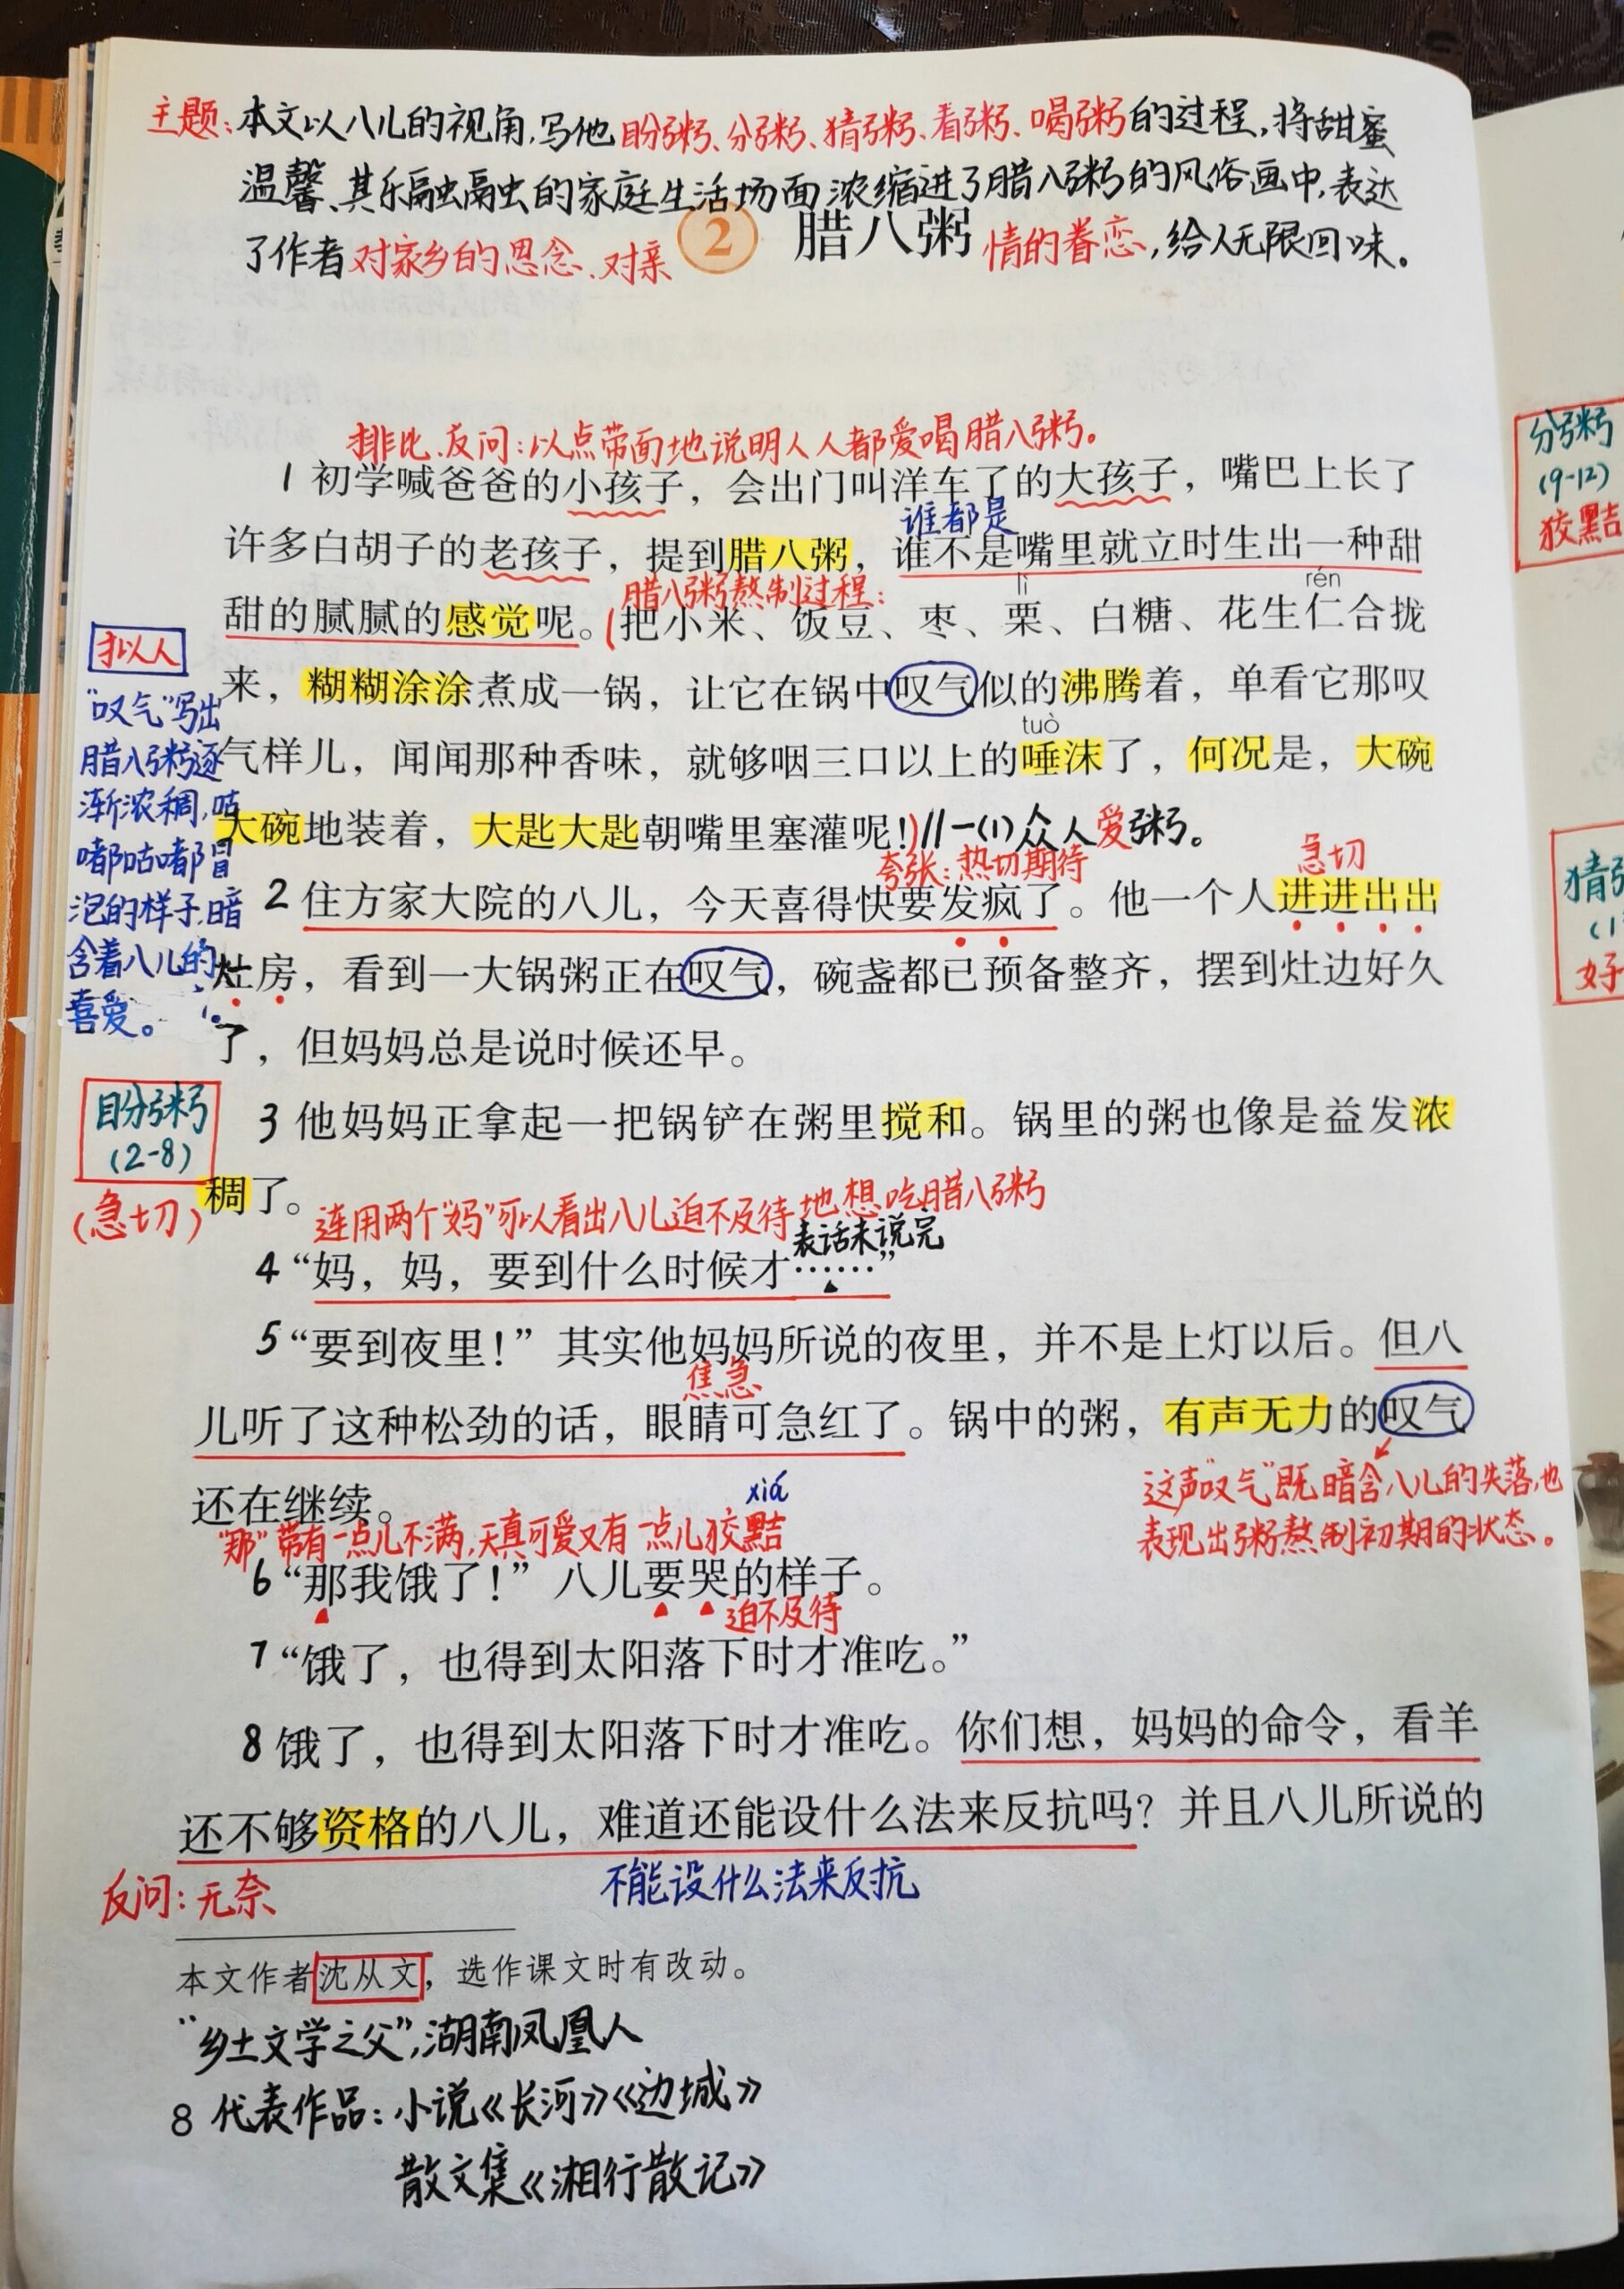 主题:本文以八儿的视角,写他盼粥、分粥、猜粥、看粥、喝粥的过程,将甜蜜
温馨、其乐融融的家庭生活场面浓缩进了腊八粥的风俗画中,表达
了作者对家乡的思念、对亲情的眷恋,给人无限回味。
2 腊八粥
排比、反问:以点带面地说明人人都爱喝腊八粥。
1 初学喊爸爸的小孩子，会出门叫洋车了的大孩子，嘴巴上长了
谁都是
许多白胡子的老孩子，提到腊八粥，谁不是嘴里就立时生出一种甜
腊八粥熬制过程:
lì rén
甜的腻腻的感觉呢。(把小米、饭豆、枣、栗、白糖、花生仁合拢
来，糊糊涂涂煮成一锅，让它在锅中叹气似的沸腾着，单看它那叹
tuò
气样儿，闻闻那种香味，就够咽三口以上的唾沫了，何况是，大碗
大碗地装着，大匙大匙朝嘴里塞灌呢!)//一(1)众人爱粥。
拟人
"叹气"写出
腊八粥逐
渐浓稠,咕
嘟咕嘟冒
泡的样子,暗
含着八儿的
喜爱。
夸张:热切期待
急切
2 住方家大院的八儿，今天喜得快要发疯了。他一个人进进出出
灶房，看到一大锅粥正在叹气，碗盏都已预备整齐，摆到灶边好久
了，但妈妈总是说时候还早。
盼粥
(2-8)
(急切)
3 他妈妈正拿起一把锅铲在粥里搅和。锅里的粥也像是益发浓
稠了。
连用两个"妈"可以看出八儿迫不及待地想吃腊八粥
表话未说完
4 “妈，妈，要到什么时候才……”
5 “要到夜里！”其实他妈妈所说的夜里，并不是上灯以后。但八
焦急
儿听了这种松劲的话，眼睛可急红了。锅中的粥，有声无力的叹气
还在继续。
这声"叹气"既暗含八儿的失落,也
表现出粥熬制初期的状态。
xiá
"那"带有一点儿不满,天真可爱又有一点儿狡黠
6 “那我饿了！”八儿要哭的样子。
迫不及待
7 “饿了，也得到太阳落下时才准吃。”
8 饿了，也得到太阳落下时才准吃。你们想，妈妈的命令，看羊
还不够资格的八儿，难道还能设什么法来反抗吗？并且八儿所说的
反问:无奈
不能设什么法来反抗
本文作者沈从文，选作课文时有改动。
"乡土文学之父",湖南凤凰人
8
代表作品:小说《长河》《边城》
散文集《湘行散记》
分粥
(9-12)
狡黠